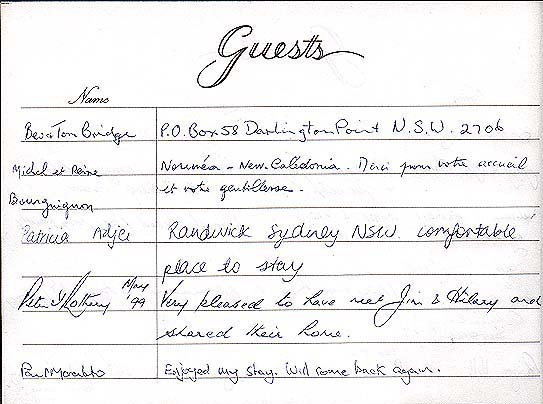 Guests
Name
Bev & Tom Bridge P.O. Box 58 Darlington Point N.S.W. 2706
Michel et Reine Nouméa - New-Calédonia. Merci pour votre accueil
Bourguignon et votre gentillesse.
Patricia Adjei Randwick Sydney NSW. comfortable
place to stay
Peter Rothery May '99 Very pleased to have met Jim & Hilary and
shared their home.
Paul Enjoyed my stay. Will come back again.